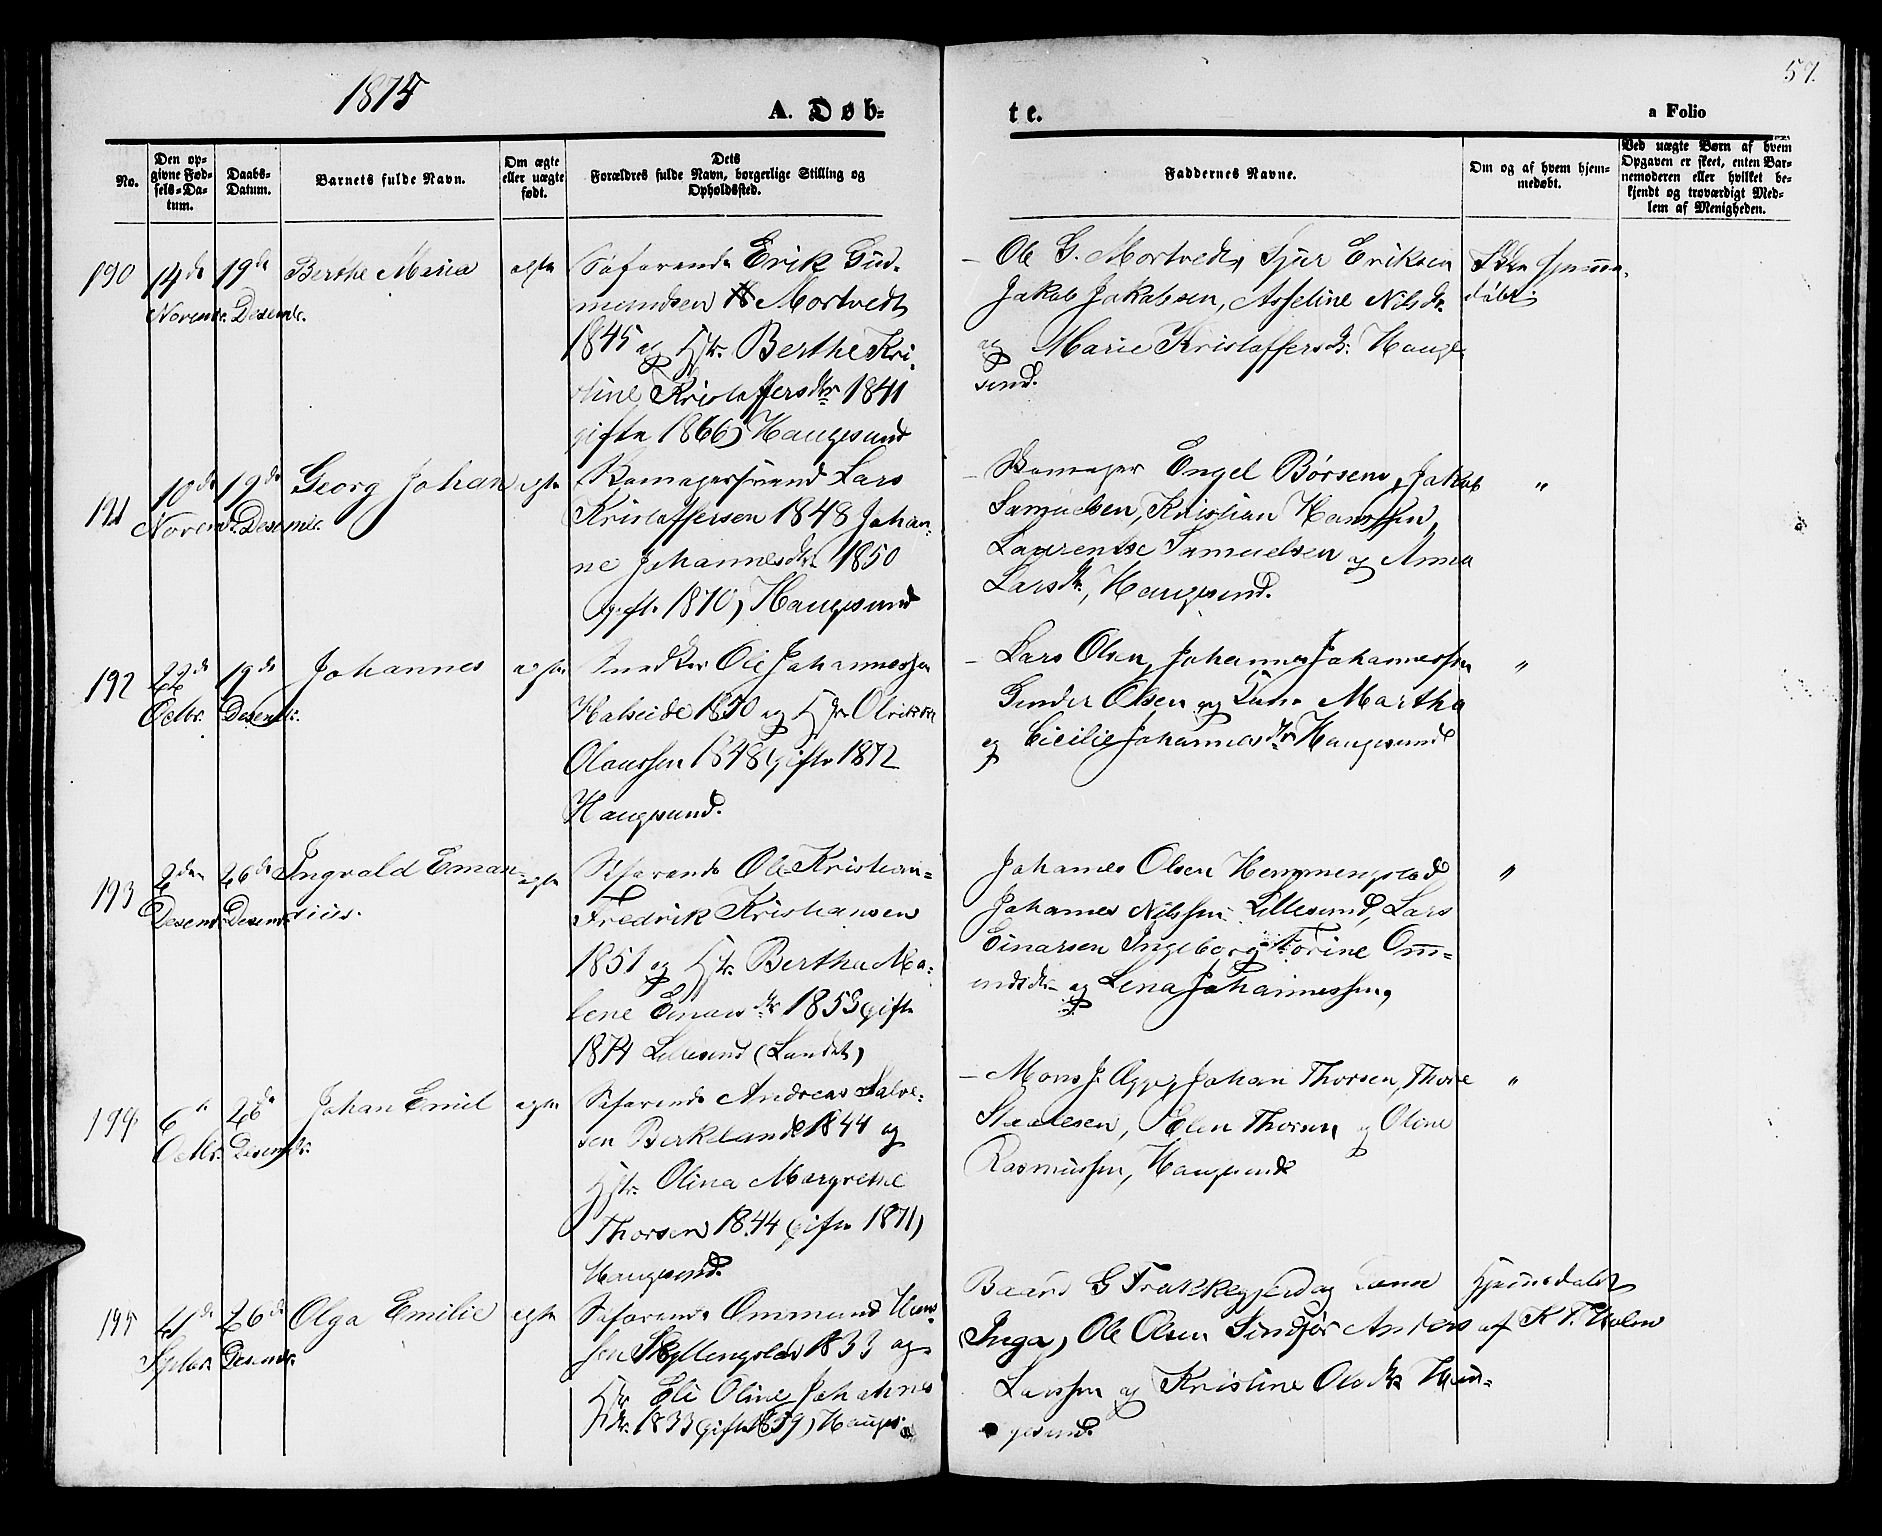 1875
57.
A. Døb-
te.
a Folio
No.
Den op-
givne Fød-
sels-Da-
tum.
Daabs-
Datum.
Barnets fulde Navn.
Om ægte
eller uægte
født.
Dets
Forældres fulde Navn, borgerlige Stilling og
Opholdssted.
Faddernes Navne.
Om og af hvem hjem-
medøbt.
Ved uægte Børn af hvem
Opgaven er skeet, enten Bar-
nemoderen eller hvilket be-
kjendt og troværdigt Med-
lem af Menigheden.
190
14de
Novembr.
19de
Desembr.
Berthe Maria
ægte
Søfarende Erik Gud-
mundsen Mortvedt
1845 og Hstr. Berthe Kri-
stine Kristoffersdtr 1841
gifte 1866) Haugesund
— Ole G. Mortvedt, Sjur Eriksen
Jakob Jakobsen, Asseline Nilsdr.
og Marie Kristoffersdr. Hauge-
sund.
Ikke hjemme-
døbt.
191
10de
Novembr.
19de
Desembr.
Georg Johan
ægte
Lars
Kristoffersen 1848 Johan-
ne Johannesdtr. 1850
gifte 1870) Haugesund
— Engel Børsen, Jakob
Samuelsen, Kristian Hanssen,
Laurentse Samuelsen og Anna
Larsdr., Haugesund.
"
192
22de
Octbr.
19de
Desembr.
Johannes
ægte
Snedker Ole Johannessen
Halseide 1850 og Hstr. Olrikke
Olaussen 1848 gifte 1872
Haugesund.
— Lars Olsen, Johannes Johannessen
Gunder Olsen og Martha
og Cicilie Johannesdtr Haugesund
"
193
2den
Desembr.
26de
Desembr.
Ingvald Eman-
sius.
ægte
Søfarende Ole Kristian
Fredrik Kristiansen
1851 og Hstr. Bertha Ma-
lene Einarsdtr 1853 gifte
1874 Lillesund (Landet)
Johannes Olsen Hemmingstad
Johannes Nilssen Lillesund, Lars
Einarsen Ingeborg Torine Om-
undsdtr og Lena Johannessen,
"
194
6te
Octbr.
26de
Desembr.
Johan Emil
ægte
Søfarende Andreas Salve-
sen Birkeland 1844 og
Hstr. Olina Margrethe
Thorsen 1844 (gifte 1871)
Haugesund.
— Mons J. Johan Thorsen, Thore
Elen Thorsen og Oline
Rasmussen, Haugesund
"
195
21de
Septbr.
26de
Desembr.
Olga Emilie
ægte
Søfarende Ommund Han-
sen 1833 og
Hstr. Eli Oline Johannes
dtr. 1833 (gifte 1859) Hauges
Baard G Frakkagjerd og
Inga, Ole Olsen Sindjør Anders
Larssen og Kristine Olsdtr Hau-
gesund.
Hjemmedøbt
af K T. Holm